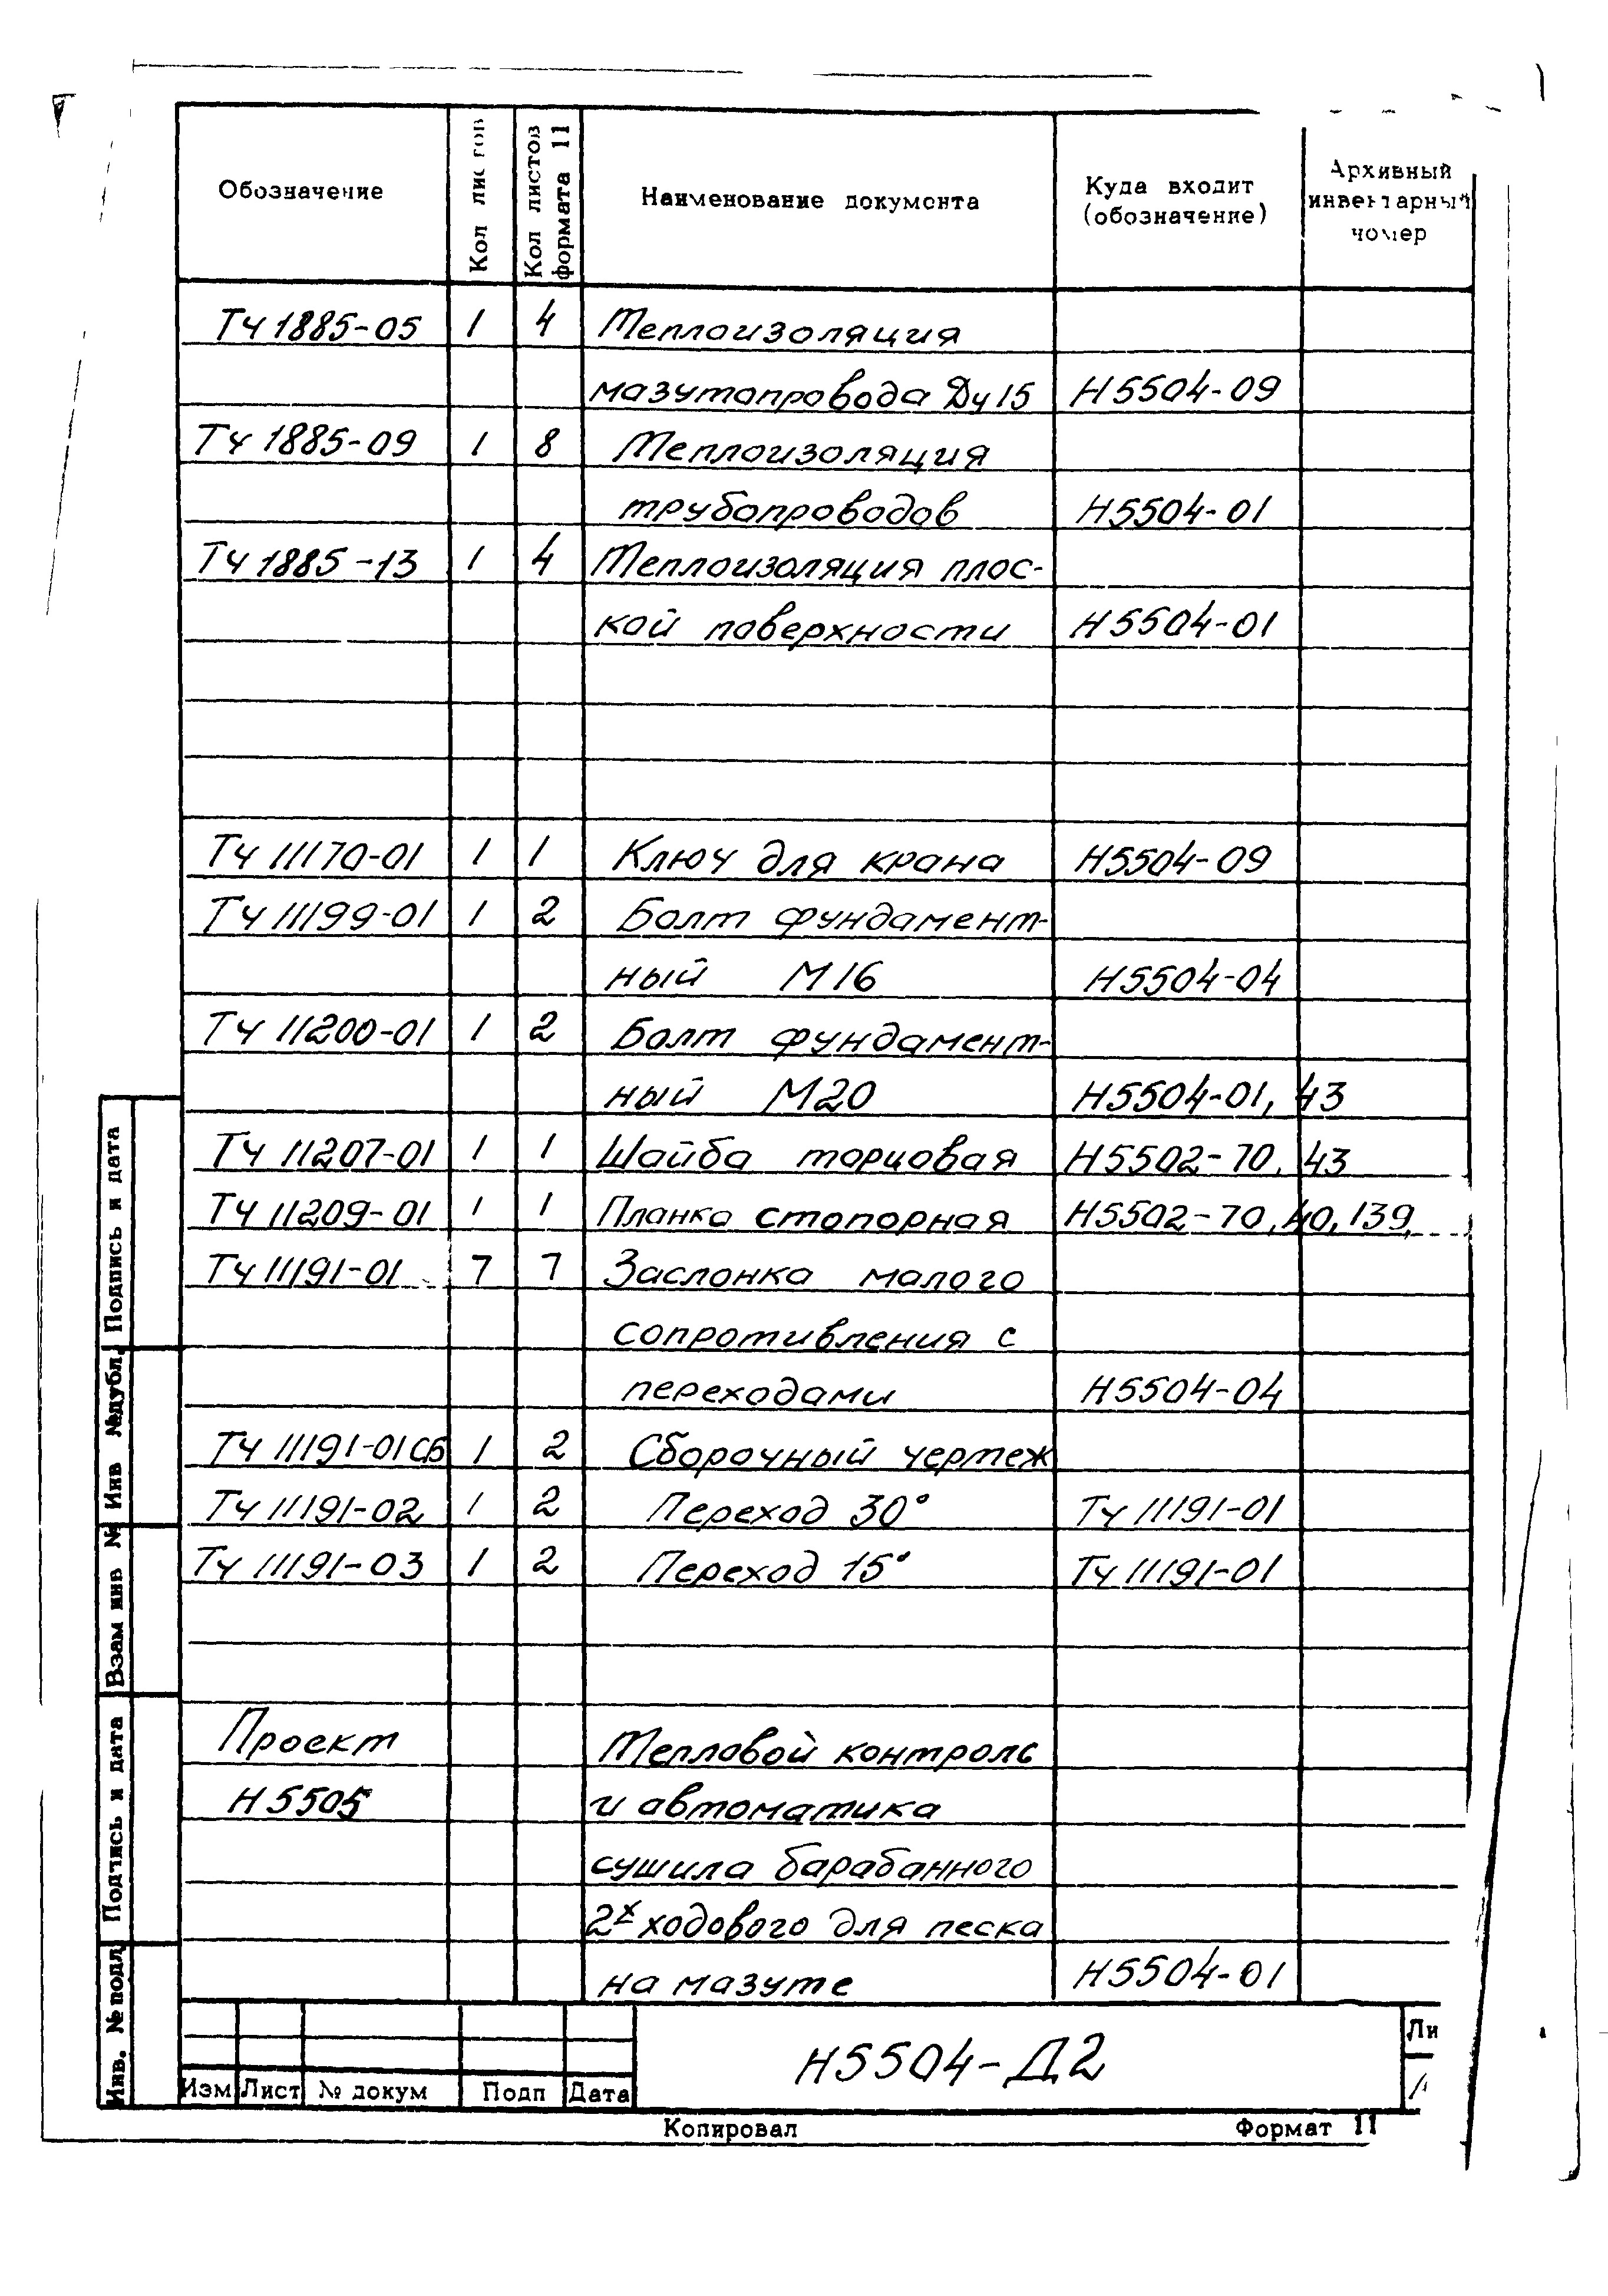 Обозначение
Кол листов
Кол листов
формата 11
Наименование документа
Куда входит
(обозначение)
Архивный
инвентарный
номер
ТЧ 1885-05 1 4 Теплоизоляция
мазутопровода Ду 15 Н5504-09
ТЧ 1885-09 1 8 Теплоизоляция
трубопроводов Н5504-01
ТЧ 1885-13 1 4 Теплоизоляция плос-
кой поверхности Н5504-01
ТЧ 11170-01 1 1 Ключ для крана Н5504-09
ТЧ 11199-01 1 2 Болт фундамент-
ный М16 Н5504-04
ТЧ 11200-01 1 2 Болт фундамент-
ный М20 Н5504-01, 43
ТЧ 11207-01 1 1 Шайба торцовая Н5502-70, 43
ТЧ 11209-01 1 1 Планка стопорная Н5502-70, 40, 139,
ТЧ 11191-01 7 7 Заслонка малого
сопротивления с
переходами Н5504-04
ТЧ 11191-01СБ 1 2 Сборочный чертеж
ТЧ 11191-02 1 2 Переход 30° ТЧ 11191-01
ТЧ 11191-03 1 2 Переход 15° ТЧ 11191-01
Проект Тепловой контроль
Н5505 и автоматика
сушила барабанного
2х ходового для песка
на мазуте Н5504-01
Подпись и дата
Инв №дубл.
Взам инв №
Подпись и дата
Инв. №подл
Изм Лист № докум Подп Дата
Н5504-Д2
Ли
Копировал
Формат 11